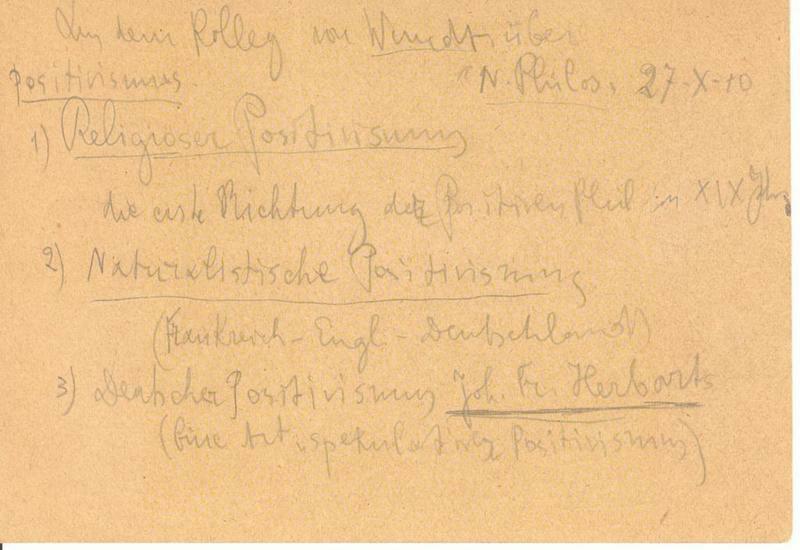 dem Kolleg von Wundts über
Positivismus. "N. Philos. 27-X-10
1) Religiöser Positivismus
die erste Richtung der Positiven Phil im XIX Jhr.
2) Naturalistische Positivismus
(Frankreich - Engl. - Deutschland)
3) Deutscher Positivismus Joh. Fr. Herbarts
(Eine Art "spekulativer Positivismus)